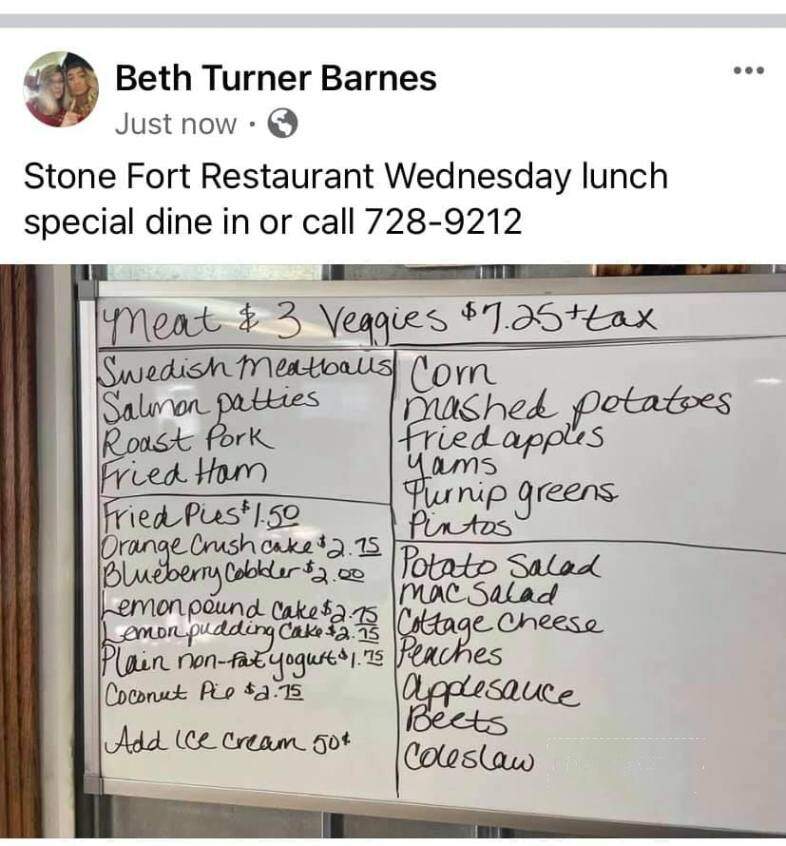 Beth Turner Barnes
Just now ·
Stone Fort Restaurant Wednesday lunch
special dine in or call 728-9212
Meat & 3 Veggies $7.25+tax
Swedish Meatballs
Salmon patties
Roast Pork
Fried Ham
Fried Pies $1.50
Orange Crush cake $2.75
Blueberry Cobbler $2.00
Lemon pound Cake $2.75
Lemon pudding Cake $2.75
Plain non-fat yogurt $1.75
Coconut Pie $2.75
Add ice cream 50¢
Corn
mashed potatoes
fried apples
yams
Turnip greens
Pintos
Potato Salad
Mac Salad
Cottage Cheese
Peaches
applesauce
Beets
Coleslaw